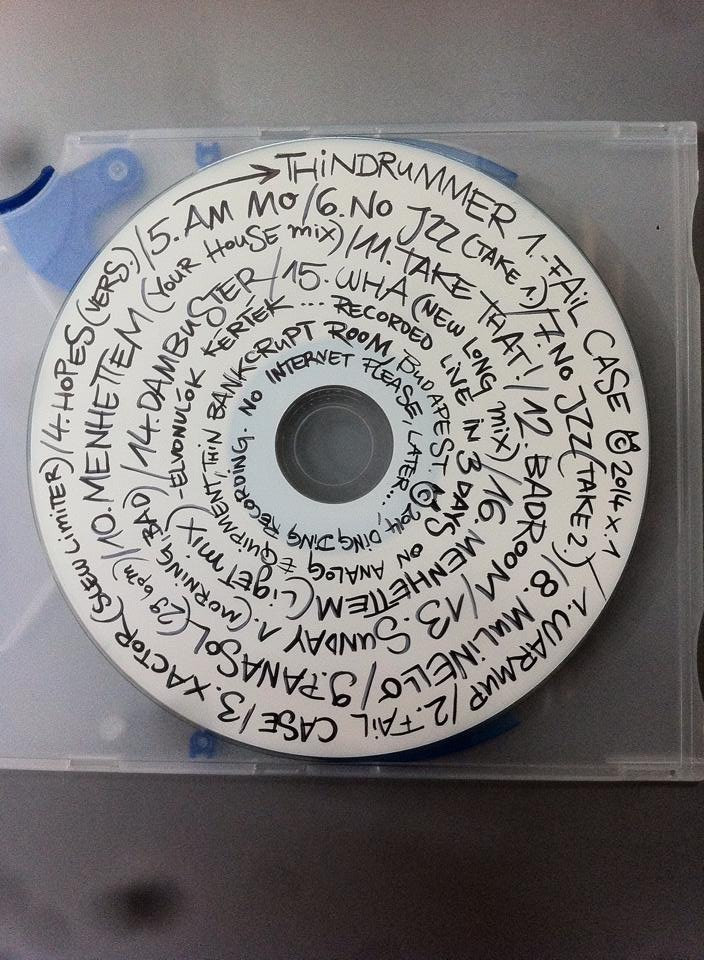 → THiNDRUMMER 1. FAiL CASE © 2014 x. 1
/1. WARMUP /2. FAiL CASE /3. XACTOR (SLEW LiMiTER) /4. HOPES (VERS.) /5. AM MO /6. NO JZZ (TAKE 1.) /7. NO JZZ (TAKE 2.)
/8. MULiNELLO /9. PANASOL (29 bpm) /10. MENHETTEM (YOUR HOUSE MiX) /11. TAKE THAT! /12. BADROOM /13. SUNDAY 1. (MORNiNG, BAD) /14. DAMBUSTER /15. WHA (NEW LONG MiX) /16. MENHETTEM (LiGET MiX)
- ELVONULÓK KERTÉK ... RECORDED LiVE iN 3 DAYS ON ANALOG EQUIPMENT, THiN BANKCRUPT ROOM, BUDAPEST.
© 2014, DiNG DiNG RECORDiNG. NO INTERNET PLEASE, LATER...